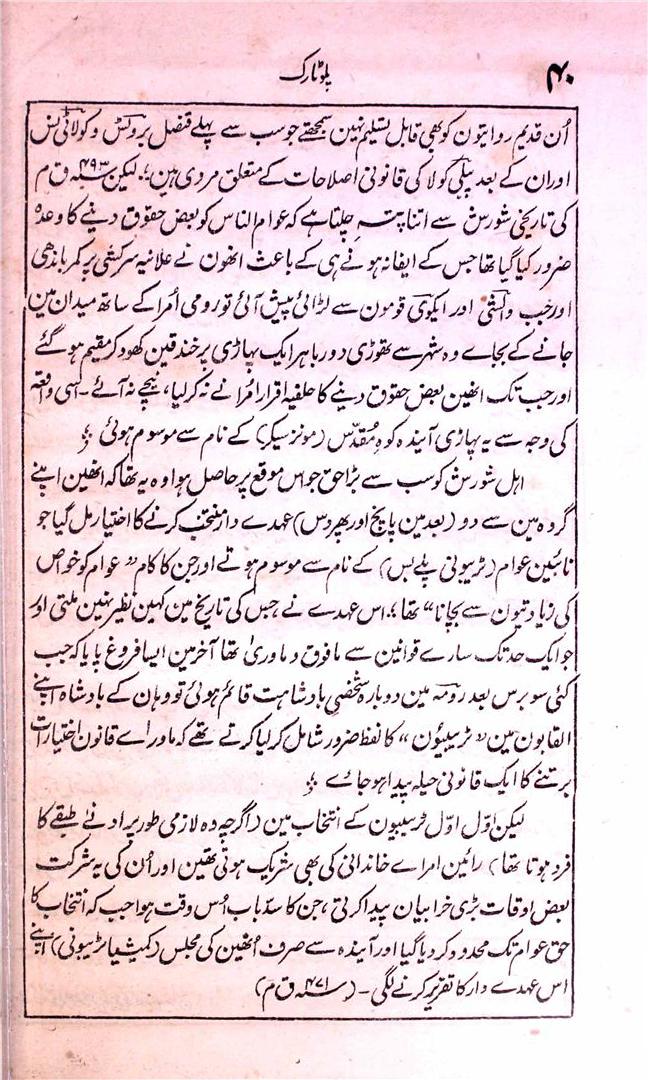 ۴۰
پلوٹارک
اُن قدیم روایتون کو بھی قابل تسلیم نہین سمجھتے جو سب سے پہلے قنصل بروٹس و کولاٹی نس
اور ان کے بعد پبلی کولا کی قانونی اصلاحات کے متعلق مروی ہین؛ لیکن ۴۹۳ سنہ ق م
کی تاریخی شورش سے اتنا پتہ چلتا ہے کہ عوام الناس کو بعض حقوق دینے کا وعدہ
ضرور کیا گیا تھا جس کے ایفا نہ ہونے ہی کے باعث انھون نے علانیہ سرکشی پر کمر باندھی
اور جب والشی اور ایکوی قومون سے لڑائی پیش آئی تو رومی اُمرا کے ساتھ میدان مین
جانے کے بجاے وہ شہر سے تھوڑی دور باہر ایک پہاڑی پر خندقین کھود کر مقیم ہو گئے
اور جب تک انھین بعض حقوق دینے کا حلفیہ اقرار اُمرا نے نہ کر لیا، نیچے نہ آئے۔ اسی واقعہ
کی وجہ سے یہ پہاڑی آیندہ کوہِ مُقدّس (مونز سیکر) کے نام سے موسوم ہوئی ؛
اہل شورش کو سب سے بڑا حق جو اس موقع پر حاصل ہوا وہ یہ تھا کہ انھین اپنے
گروہ مین سے دو (بعد مین پانچ اور پھر دس) عہدے دار منتخب کرنے کا اختیار مل گیا جو
نائبین عوام (ٹریبونی پلے بس) کے نام سے موسوم ہوتے اور جن کا کام "عوام کو خواص
کی زیادتیون سے بچانا" تھا؛ اس عہدے نے جس کی تاریخ مین کہین نظیر نہین ملتی اور
جو ایک حد تک سارے قوانین سے مافوق و ماوریٰ تھا آخر مین ایسا فروغ پایا کہ جب
کئی سو برس بعد رومہ مین دوبارہ شخصی بادشاہت قائم ہوئی تو وہان کے بادشاہ اپنے
القابون مین "ٹریبیون" کا لفظ ضرور شامل کر لیا کرتے تھے کہ ماوراے قانون اختیارات
برتنے کا ایک قانونی حیلہ پیدا ہو جاے ؛
لیکن اوّل اوّل ٹریبیون کے انتخاب مین (اگرچہ وہ لازمی طور پر ادنے طبقے کا
فرد ہوتا تھا) رائین امراے خاندانی کی بھی شریک ہوتی تھین اور اُن کی یہ شرکت
بعض اوقات بڑی خرابیان پیدا کرتی، جن کا سدّ باب اُس وقت ہوا جب کہ انتخاب کا
حق عوام تک محدود کر دیا گیا اور آیندہ سے صرف اُنھین کی مجلس (کمیشیا ٹریبونی) اپنے
اس عہدے دار کا تقرر کرنے لگی۔ (۴۷۱ سنہ ق م)